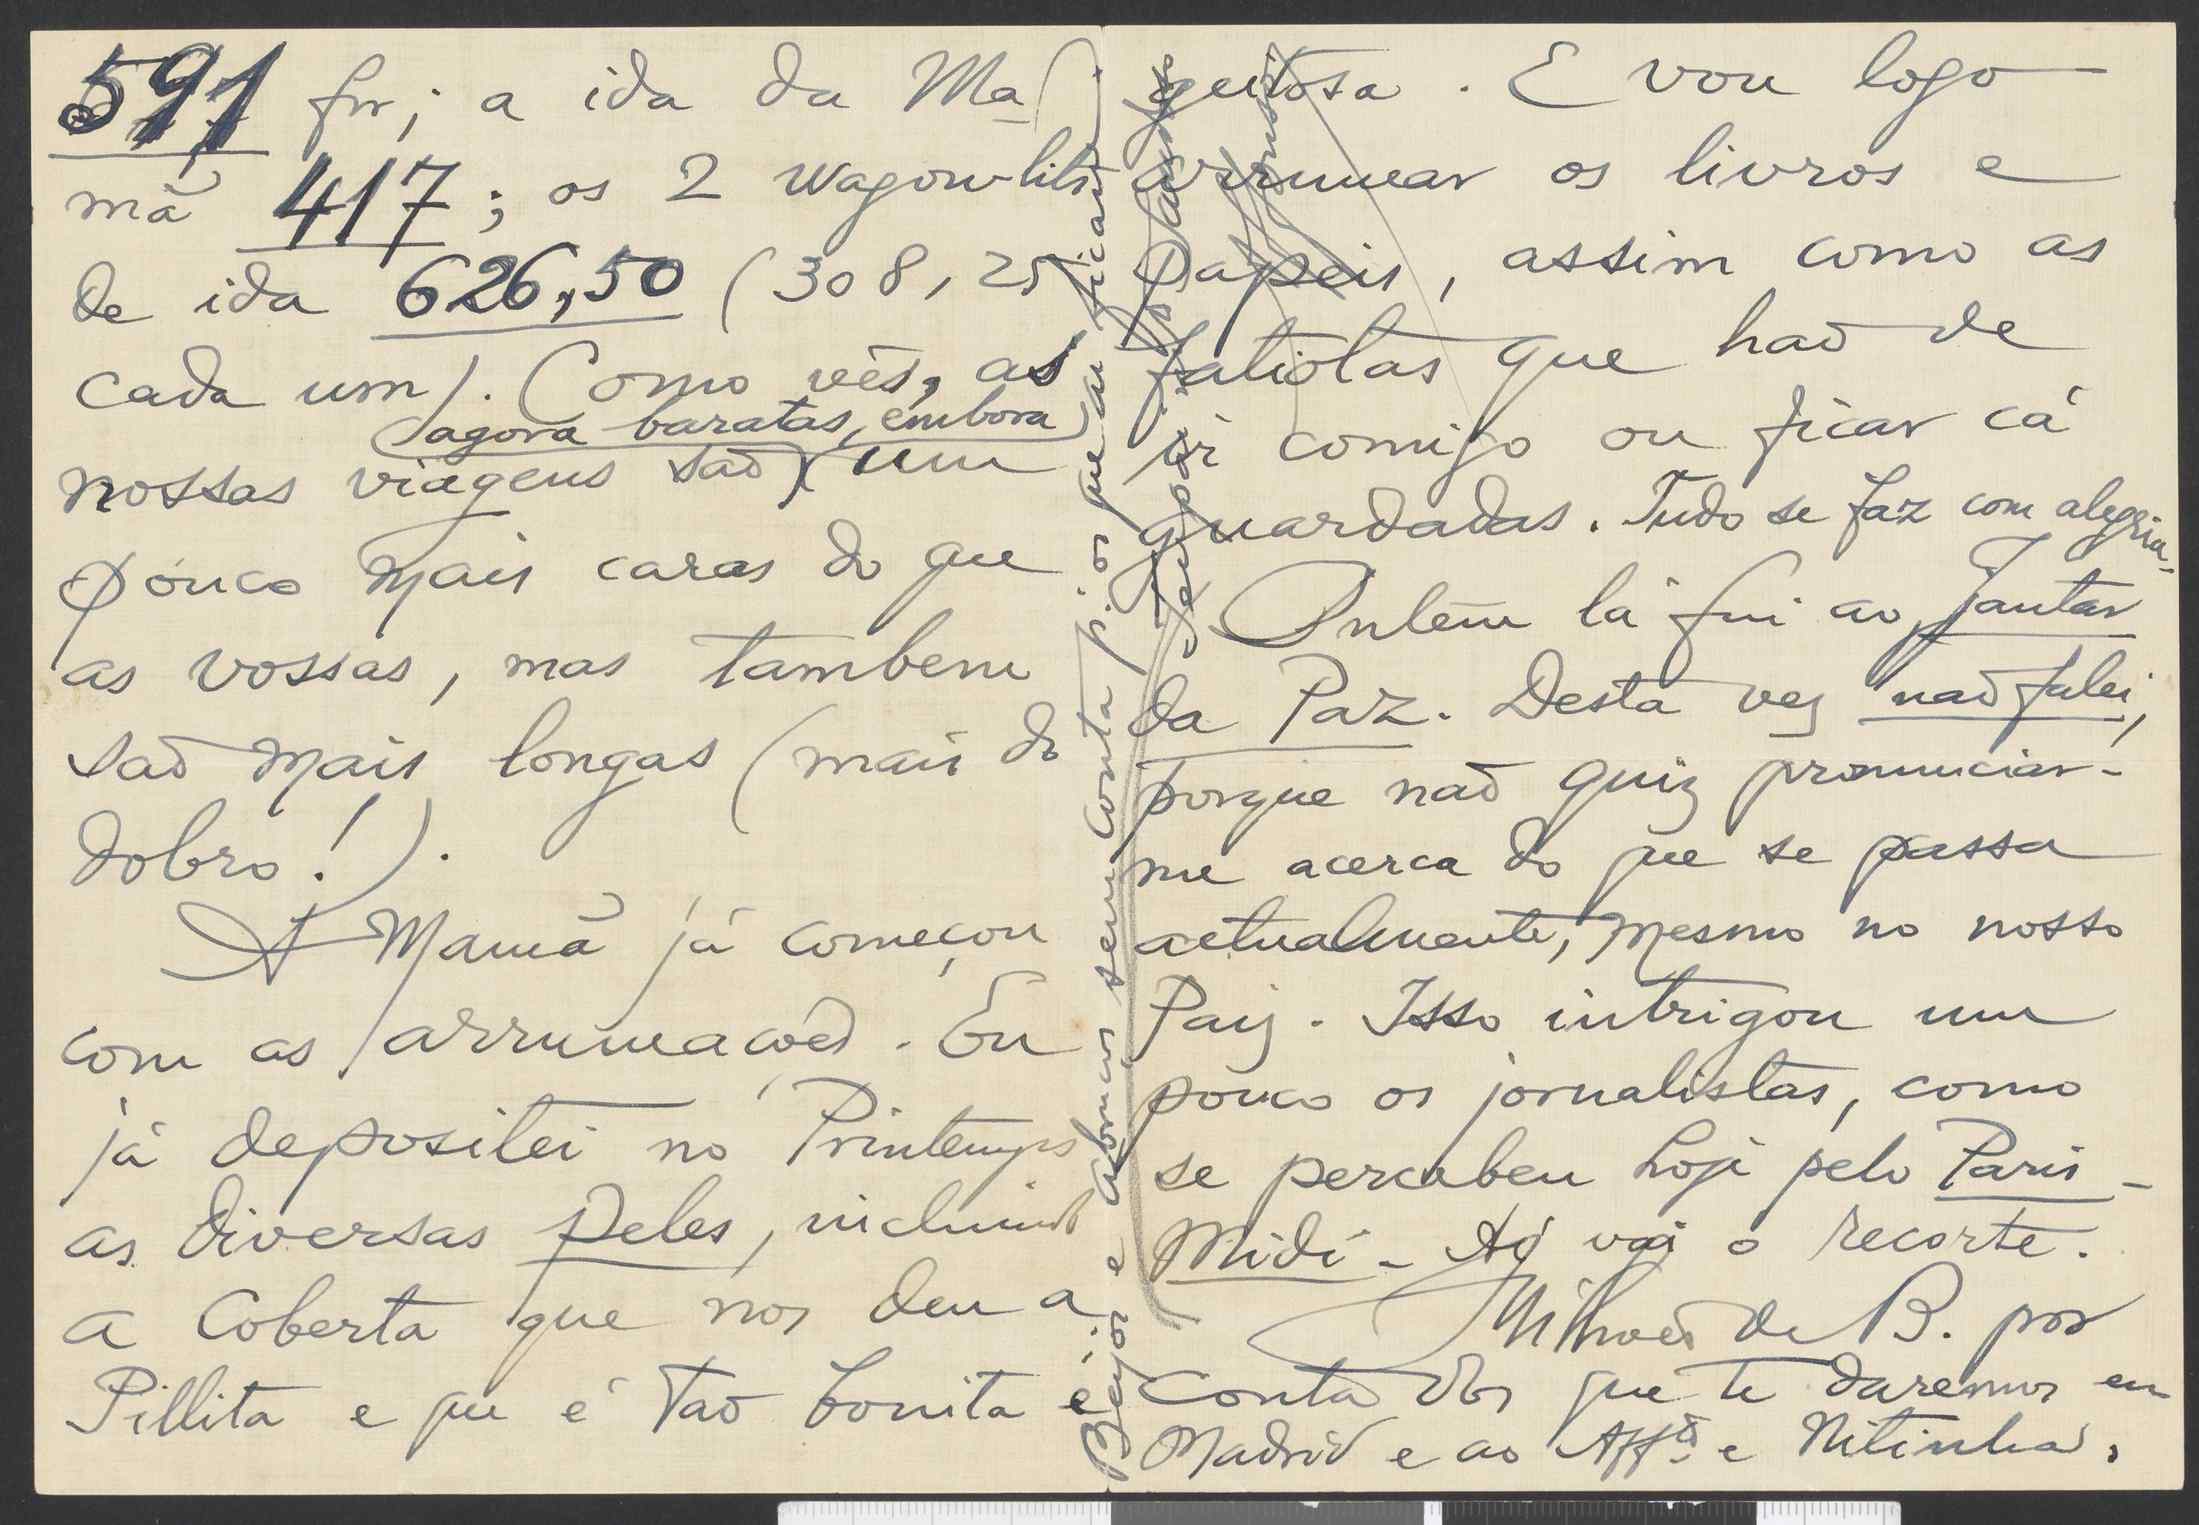 591 fr; a ida da Ma-
mã 417; os 2 wagon-lits
de ida 626,50 (308,25
cada um). Como vês, as
nossas viagens saõ agora baratas, embora um
pouco mais caras do que
as vossas, mas tambem
saõ mais longas (mais do
dobro!).
A Mamã já começou
com as arrumações. Eu
já depositei no Printemps
as diversas peles, incluindo
a coberta que nos deu a
Pillita e que é taõ bonita e
geitosa. E vou logo
arrumar os livros e
papeis, assim como as
fatiotas que haõ de
ir comigo ou ficar cá
guardadas. Tudo se faz com alegria.
Ontem lá fui ao Jantar
da Paz. Desta vez naõ falei,
porque naõ quiz pronunciar-
me acerca do que se passa
actualmente, mesmo no nosso
Paiz. Isso intrigou um
pouco os jornalistas, como
se percebeu hoje pelo Paris-
Midi - Aí vai o recorte.
Milhoẽs de B. por
conta dos que te daremos em
Madrid e ao Affº e Nitinha.
Beijos e abraços sem conta p.ª os que aí ficam.